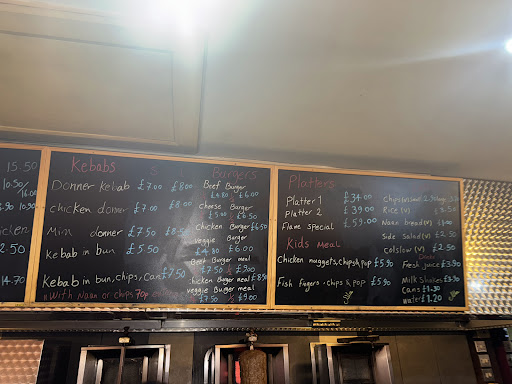 15.50
10.50/
16.00
10.50
2.50
14.70
Kebabs
Donner kebab £7.00 £8.00
chicken donner £7.00 £8.00
Mix donner £7.50 £8.50
Kebab in bun £5.50
Kebab in bun, chips, can £7.50
With Naan or chips
Burgers
Beef Burger
£4.80 £6.00
cheese Burger
£5.00 £6.50
chicken Burger £6.50
veggie Burger
£4.80 £6.00
Beef Burger meal
£7.50
chicken Burger meal £8.50
veggie Burger meal
£7.50 £9.00
Platters
Platter 1 £34.00
Platter 2 £39.00
Flame special £59.00
Kids Meal
Chicken nuggets, chips & pop £5.90
Fish fingers, chips & pop £5.90
Rice (v) £3.50
Naan bread (v)
Side Salad (v) £2.50
colslow (v) £2.50
Drinks
Fresh juice £3.90
Milk Shakes £3.90
Cans £1.30
water £1.20